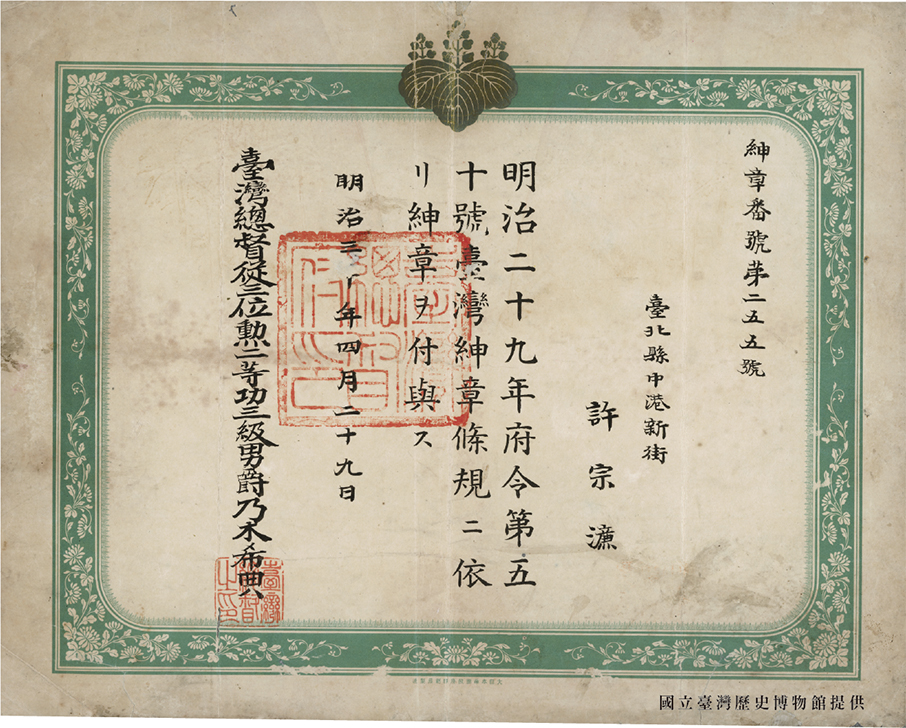 紳章番號第二五五號
臺北縣中港新街
許宗濂
明治二十九年府令第五
十號臺灣紳章條規ニ依
リ紳章ヲ付與ス
明治三十年四月二十九日
臺灣總督從三位勲二等功三級男爵乃木希典
臺灣總督之印
國立臺灣歷史博物館提供